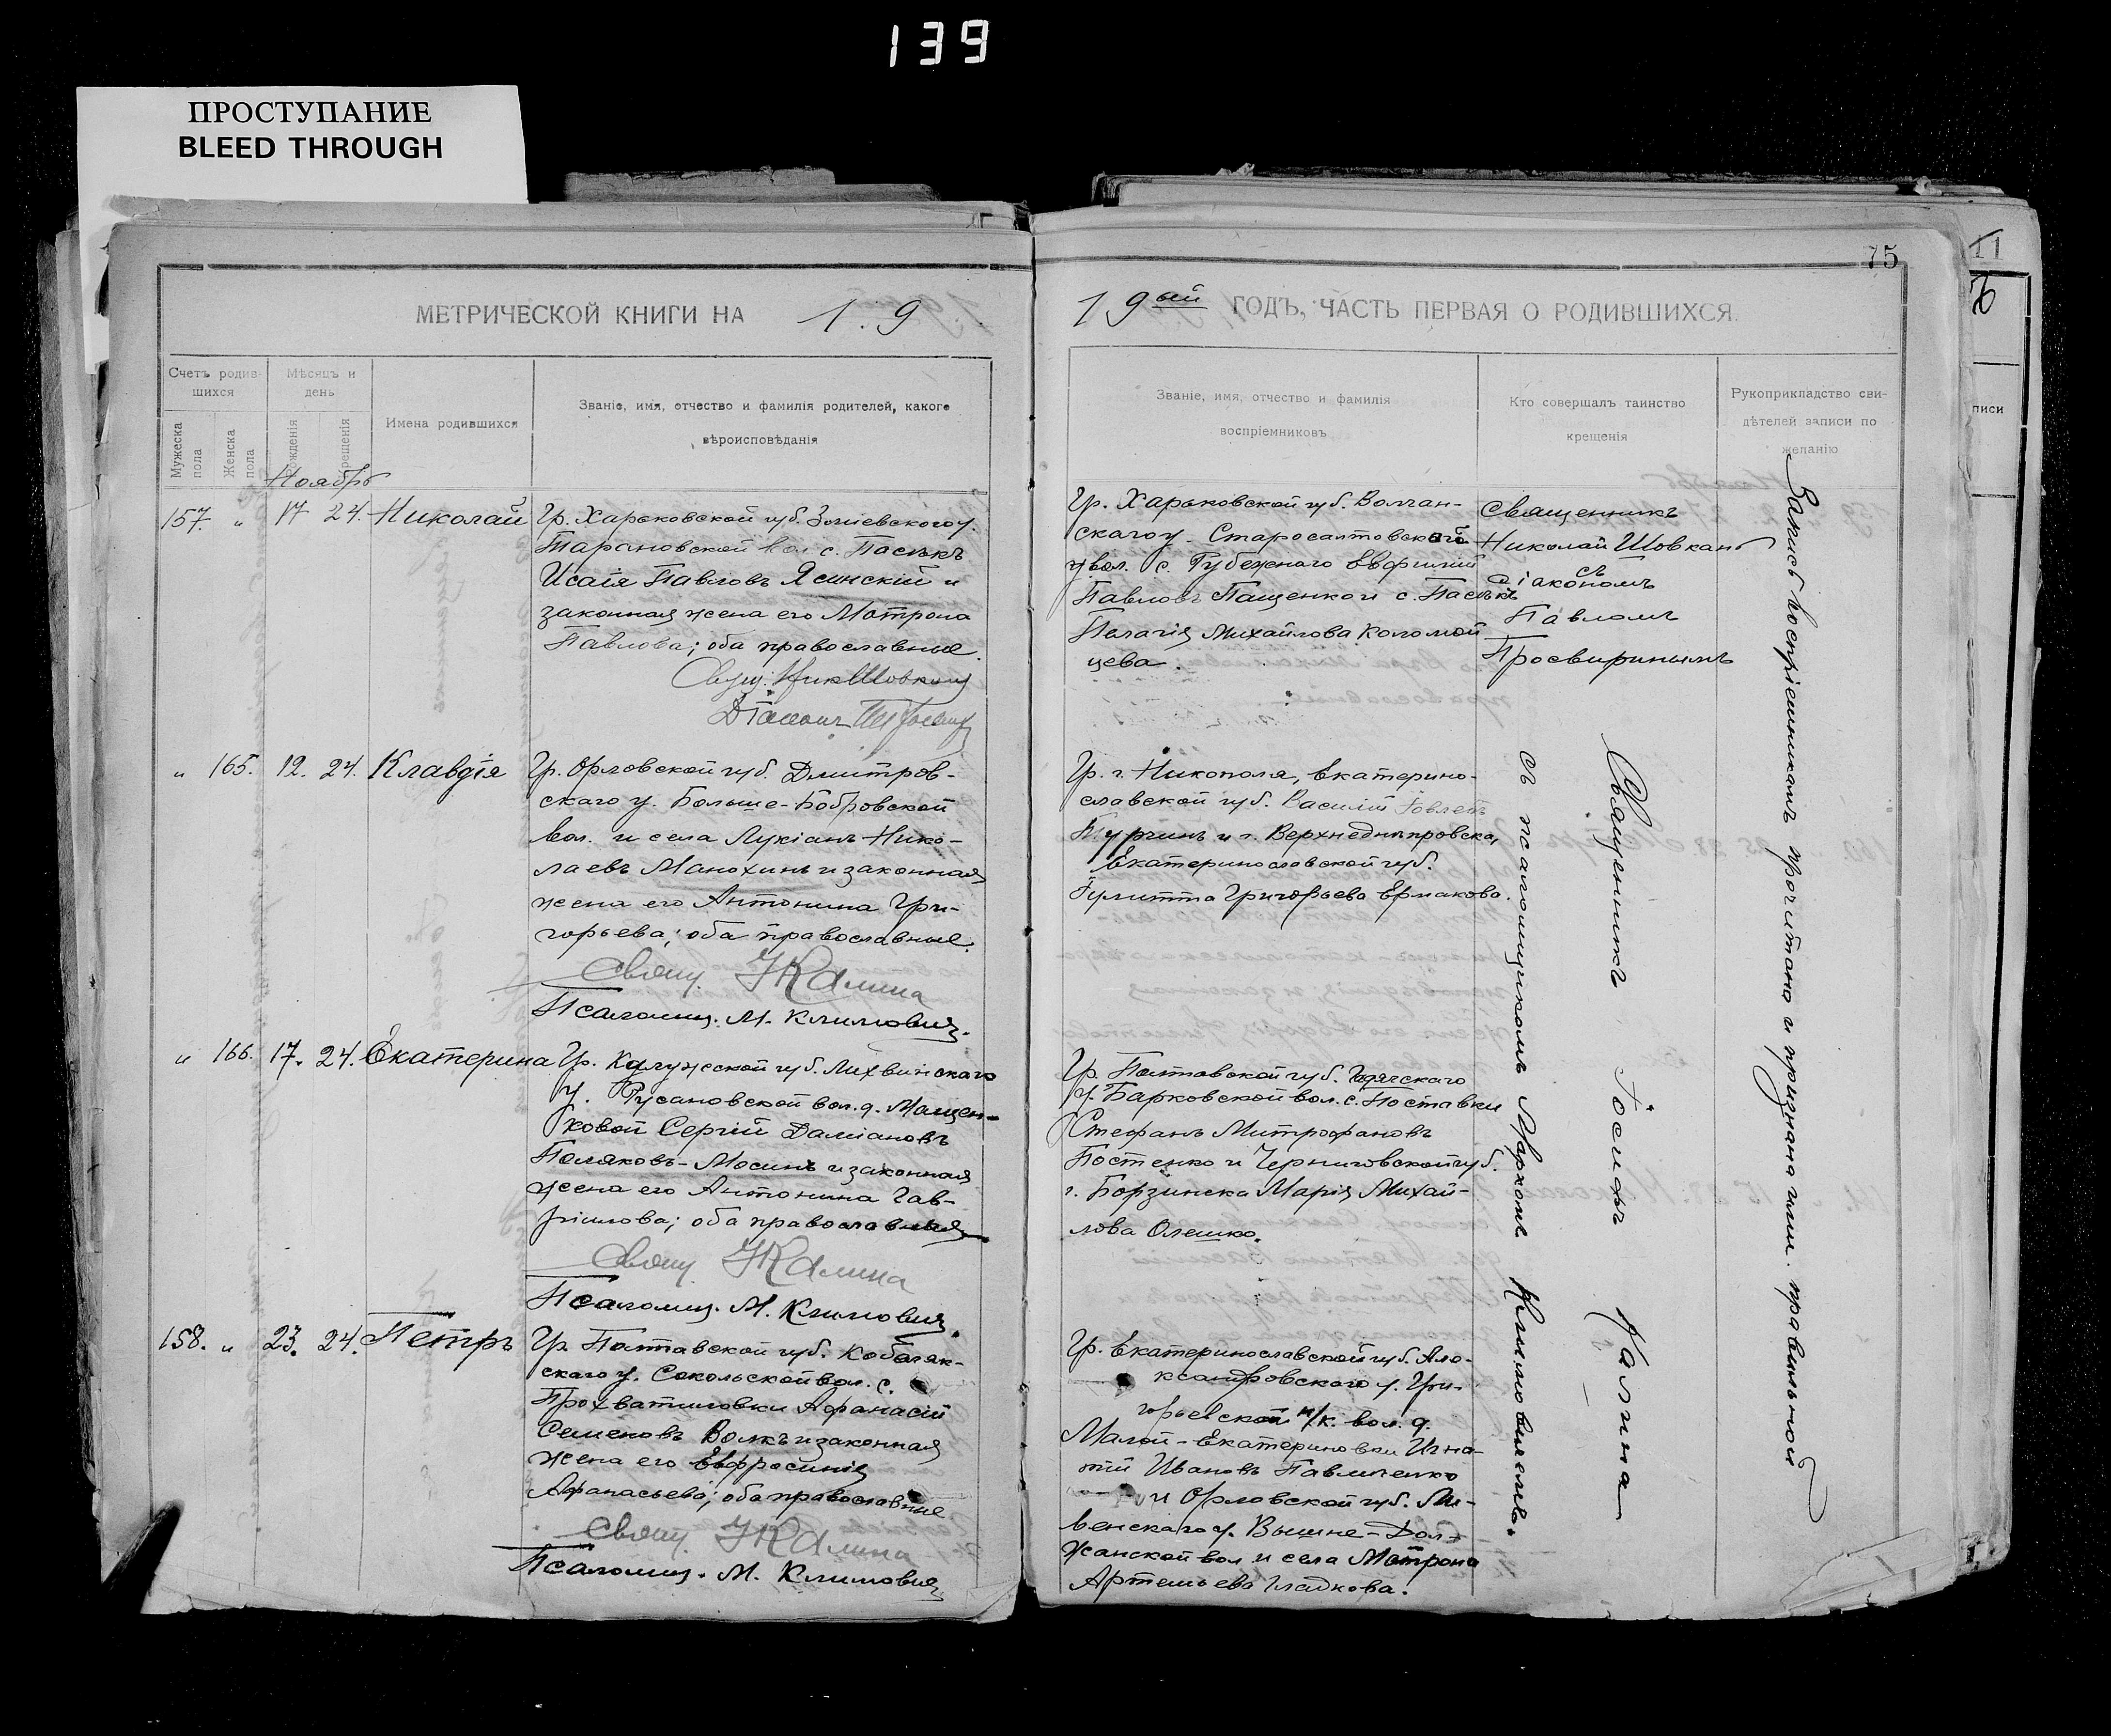 139
ПРОСТУПАНИЕ
BLEED THROUGH
75
МЕТРИЧЕСКОЙ КНИГИ НА 1.9
19ый ГОДЪ, ЧАСТЬ ПЕРВАЯ О РОДИВШИХСЯ.
Счетъ родив-
шихся
Мужеска пола
Женска пола
Мѣсяцъ и
день
рожденія
крещенія
Имена родившихся
Званіе, имя, отчество и фамилія родителей, какого
вѣроисповѣданія
Званіе, имя, отчество и фамилія
воспріемниковъ
Кто совершалъ таинство
крещенія
Рукоприкладство сви-
дѣтелей записи по
желанію
писи
Ноябрь
157. " 17 24. Николай
Гр. Харьковской губ. Зміевского у.
Тарановской вол. с. Пасѣкъ
Исаія Павловъ Ясинскій и
законная жена его Матрона
Павлова; оба православные.
Свящ. Ник Шовкань
Діаконъ
Гр. Харьковской губ. Волчан-
скаго у. Старосалтовской
вол. с. Рубежнаго Евфимій
Павловъ Пащенко и с. Пасѣкъ
Пелагія Михайлова Коломой
цева.
Священникъ
Николай Шовкань
съ
діакономъ
Павломъ
Просвиринымъ
" 165. 12. 24. Клавдія
Гр. Орловской губ. Дмитров-
скаго у. Больше-Бобровской
вол. и села Лукіанъ Нико-
лаевъ Манохинъ и законная
жена его Антонина Гри-
горьева; оба православные.
Свящ. І Калина
Псаломщ. М. Климович.
Гр. г. Никополя, Екатерино-
славской губ. Василій
Турчинъ и г. Верхнеднѣпровска,
Екатеринославской губ.
Іулитта Григорьева Ермакова.
" 166. 17. 24. Екатерина
Гр. Калужской губ. Лихвинскаго
у. Русановской вол. д. Мащен-
ковой Сергій Даміановъ
Поляковъ-Мосинъ и законная
жена его Антонина Гав-
ріилова; оба православныя
Свящ. І Калина
Псаломщ. М. Климович.
Гр. Полтавской губ. Гадячскаго
у. Барковской вол. с. Поставки
Стефанъ Митрофановъ
Постенко и Черниговской губ.
г. Борзинска Марія Михай-
лова Олешко.
158. " 23. 24. Петръ
Гр. Полтавской губ. Кобеляк-
скаго у. Сокольской вол. с.
Прохватиловки Афанасій
Семеновъ Волкъ и законная
жена его Евфросинія
Афанасьева; оба православные
Свящ. І Калина
Псаломщ. М. Климович
Гр. Екатеринославской губ. Але-
ксандровского у. Гри-
горьевской н/к. вол. д.
Малой-Екатериновки Игна-
тій Ивановъ Павличенко
и Орловской губ. Ли-
венскаго у. Вышне-Дол-
жанской вол и села Матрона
Артемьева Гладкова.
Священникъ Іосифъ Калина
съ псаломщикомъ Маркомъ Климовичемъ.
Запись воспріемникамъ прочитана и признана ими правильной